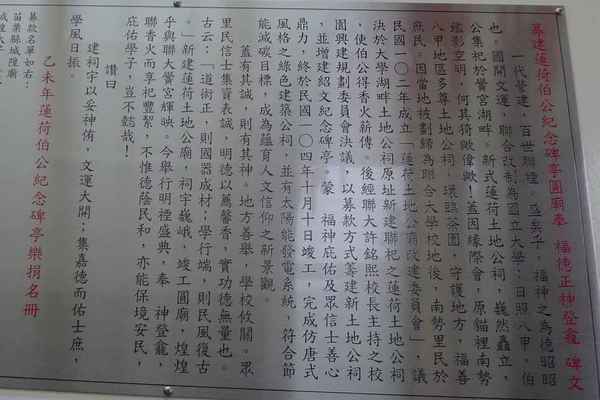 募建蓮荷伯公紀念碑亭圓廟奉 福德正神登龕 碑文
一代營建,百世聯陞。盛矣乎,福神之為德昭昭
也。國開文運,聯合改制為國立大學;日照八甲,伯
公集祀於黌宮湖畔。新式蓮荷土地公祠,巍然矗立,
鑑影空明,何其猗歟偉歟!蓋因緣際會,原貓裡南勢
八甲地區多尊土地公祠,環臨茶園,守護地方,福善
庶民。因當地被劃歸為聯合大學校地後,南勢里民於
民國一○二年成立「蓮荷土地公廟改建委員會」,議
決於大學湖畔土地公祠原址新建聯祀之蓮荷土地公祠
,使伯公得香火薪傳。後經聯大許銘熙校長主持之校
園興建規劃委員會決議,以募款方式籌建新土地公祠
,並增建紹文紀念碑亭。蒙 福神庇佑及眾信士善心
鼎力,終於民國一○四年十月十日竣工,完成仿唐式
風格之綠色建築公祠,並有太陽能發電系統,符合節
能減碳目標,成為蘊育人文信仰之新景觀。
蓋有其誠,則有其神。地方善舉,學校攸關。眾
里民信士集資表誠,明德以薦馨香,實功德無量也。
古云:「道術正,則國器成材;學行端,則民風復古
。」新建蓮荷土地公廟,祠宇巍峨,竣工圓廟,煌煌
乎與聯大黌宮輝映。今舉行明禋盛典,奉 神登龕,
聯香火而享祀豐絜,不惟德蔭民和,亦能保境安民,
庇佑學子,豈不懿哉!
讚曰
建祠宇以妥神侑,文運大開;集嘉德而佑士庶,
學風日振。
乙未年蓮荷伯公紀念碑亭樂捐名冊
募款名單如右:
苗栗縣城隍廟